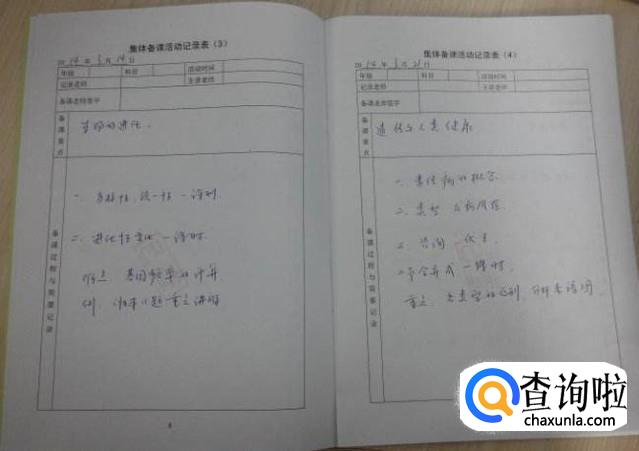 集体备课活动记录表（3）
2014年3月14日
年级 科目 活动时间
记录老师 主课老师
备课老师签字
备课重点
生物的进化.
备课过程与简要记录
一、多样性,统一性一课时
二、进化性变化一课时.
难点 基因频率的计算
例、归来习题重点讲解
8
集体备课活动记录表（4）
2014年3月21日
年级 科目 活动时间
记录老师 主课老师
备课老师签字
备课重点
遗传与人类健康
备课过程与简要记录
一、遗传病的概念
二、类型 与病因
三、咨询 优生
二节合并成一课时.
重点.
查询啦
chaxunla.com